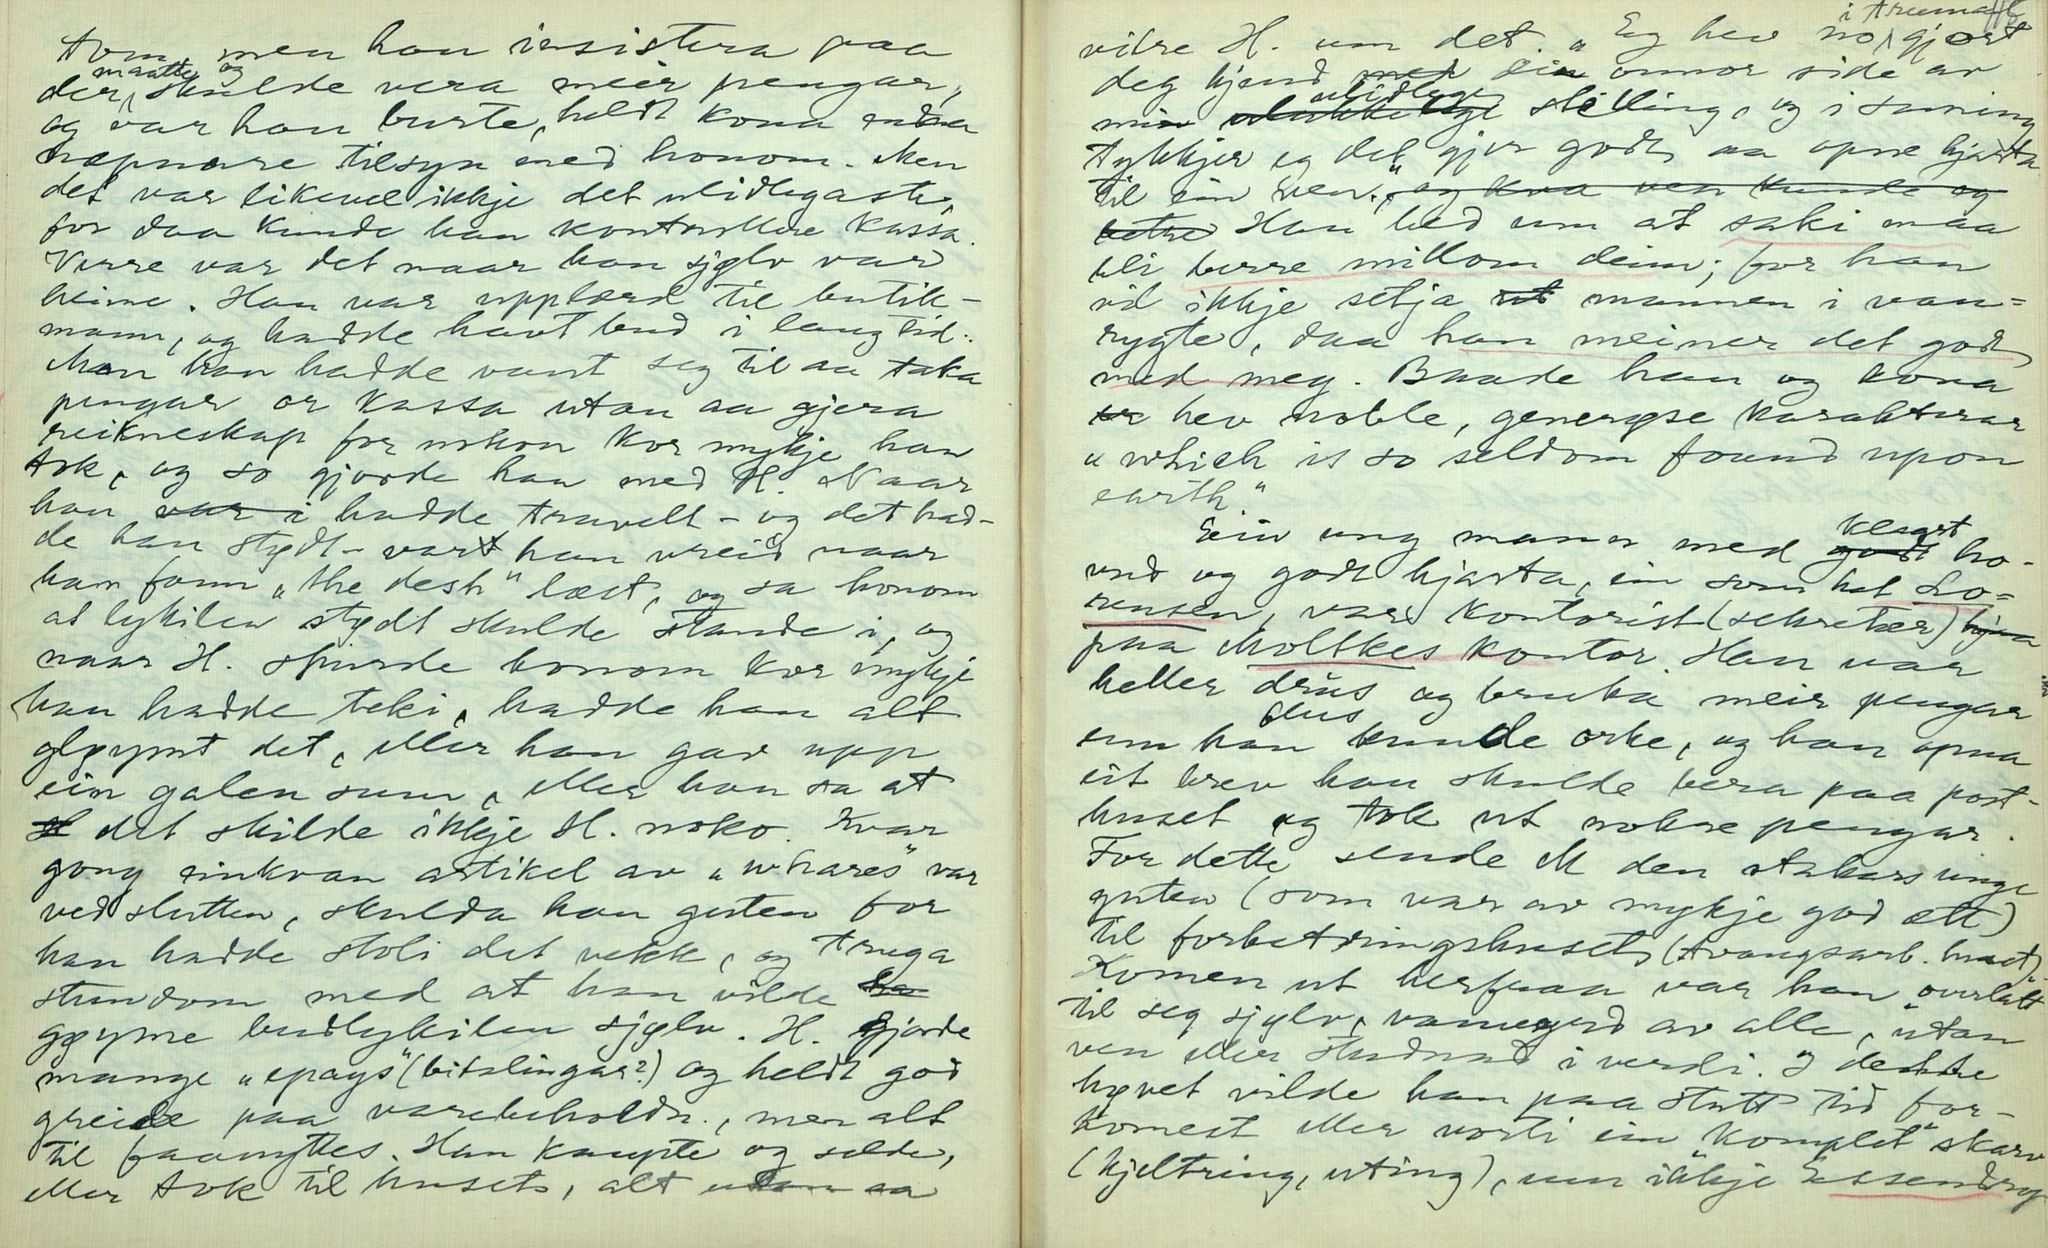 tom, men han insistera paa
der maatte og skulde vera meir pengar,
og var han burte, heldt kona endaa
næpnare tilsyn med honom. Men
det var likevel ikkje det ulidlegaste,
for daa kunde han kontrollere kassa.
Verre var det naar han sjølv var
heime. Han var upplærd til butik-
mann, og hadde havt bud i lang tid.
Men han hadde vant seg til aa taka
pengar or kassa utan aa gjera
reikneskap for nokon kor mykje han
tok, og so gjorde han med H. Naar
han var i hadde travelt - og det had-
de han stødt - vart han vreid naar
han fann "the desk" læst, og sa honom
at lykilen stødt skulde stande i, og
naar H. spurde honom kor mykje
han hadde teki, hadde han alt
gløymt det, eller han gav upp
ein galen sum, eller han sa at
det skilde ikkje H. noko. Kvar
gong einkvan artikel av "whares" var
ved slutten, skulda han guten for
han hadde stoli det vekk, og truga
stundom med at han vilde
gøyme budlykilen sjølv. H. gjorde
mange "epays" (bitslingar?) og heldt god
greide paa varebeholdn., men alt
til faanyttes. Han kaupte og selde,
eller tok til huset, alt utan aa
vitre H. um det. "Eg hev no i truemaal gjort
deg kjend med ein onnor side av
min ulukkelege ulidlege stilling, og i sanning
tykkjer eg det gjer godt aa opne hjarta
til ein ven," og kva ven kunde eg
betre Han bed um at saki maa
bli berre millom deim; for han
vil ikkje setja ut mannen i van-
rygte, daa han meiner det godt
med meg. Baade han og kona
er hev noble, generøse karakterar
"which is so seldom found upon
earth"
Ein ung mann med godt klaart ho-
vud og godt hjarta, ein som het Lo-
rensen, var kontorist (sekretær) hjaa
paa Moltkes kontor. Han var
heller drus dus og bruka meir pengar
enn han kunde orke, og han opna
eit brev han skulde bera paa post-
huset og tok ut nokre pengar.
For dette sende M den stakars unge
guten (som var av mykje god ætt)
til forbetringshuset (tvangsarb. huset).
Komen ut herfraa var han "overlatt
til seg sjølv, vanvyrd av alle, utan
ven eller studnad i verdi. I denne
høvet vilde han paa stutt tid for-
komest eller vorti ein "komplet" skarv
(kjeltring, uting), um ikkje Essendrop